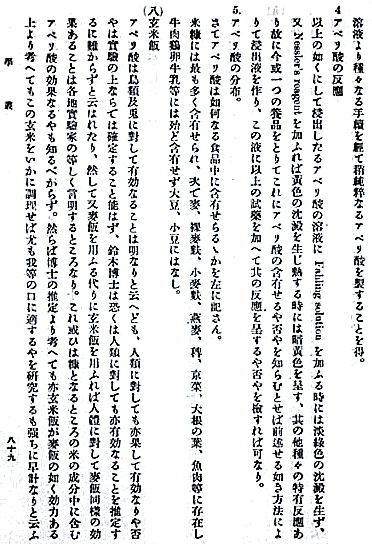 溶液より種々なる手續を經て稍純粹なるアベリ酸を製することを得。
4
アベリ酸の反應
以上の如くにして浸出したるアベリ酸の溶液に Fahling solution を加ふる時には淡綠色の沈澱を生ず、
又 Nessler's reagent を加ふれば黃色の沈澱を生じ熱する時には暗黃色を呈す、其の他種々の特有反應あ
り故に今或一つの養品をとりてこれにアベリ酸の含有せるや否やを知らむとせば前述せる如き方法によ
りて浸出液を作り、この液に以上の試藥を加へて其の反應を呈するや否やを檢すれば可なり。
5.
アベリ酸の分布。
さてアベリ酸は如何なる食品中に含有せらるゝかを左に記さん。
米糠には最も多く含有せられ、次で麥、裸麥麩、小麥麩、燕麥、稗、京菜、大根の葉、魚肉等に存在し
牛肉鷄卵牛乳等には殆ど含有せず大豆、小豆にはなし。
(八)
玄米飯
アベリ酸は鳥類及兎に對して有効なることは明なりと云へども、人類に對しても亦果して有効なりや否
やは實驗の上ならでは確定すること能はず、鈴木博士は恐くは人類に對しても亦有効なることを推定す
るに難からずと云はれたり、然して又麥飯を用ふる代りに玄米飯を用ふれば人體に對して麥飯同樣の効
果あることは各地實驗家の等しく言明するところなり。これ或ひは糠となるところの米の成分中に含む
アベリ酸の効果なるやも知るべからず。然らば博士の推定より考へても亦玄米飯が麥飯の如く効力ある
上より考へてもこの玄米をいかに調理せば尤も我等の口に適するやを研究するも强ちに早計なりと云ふ
學叢
八十九